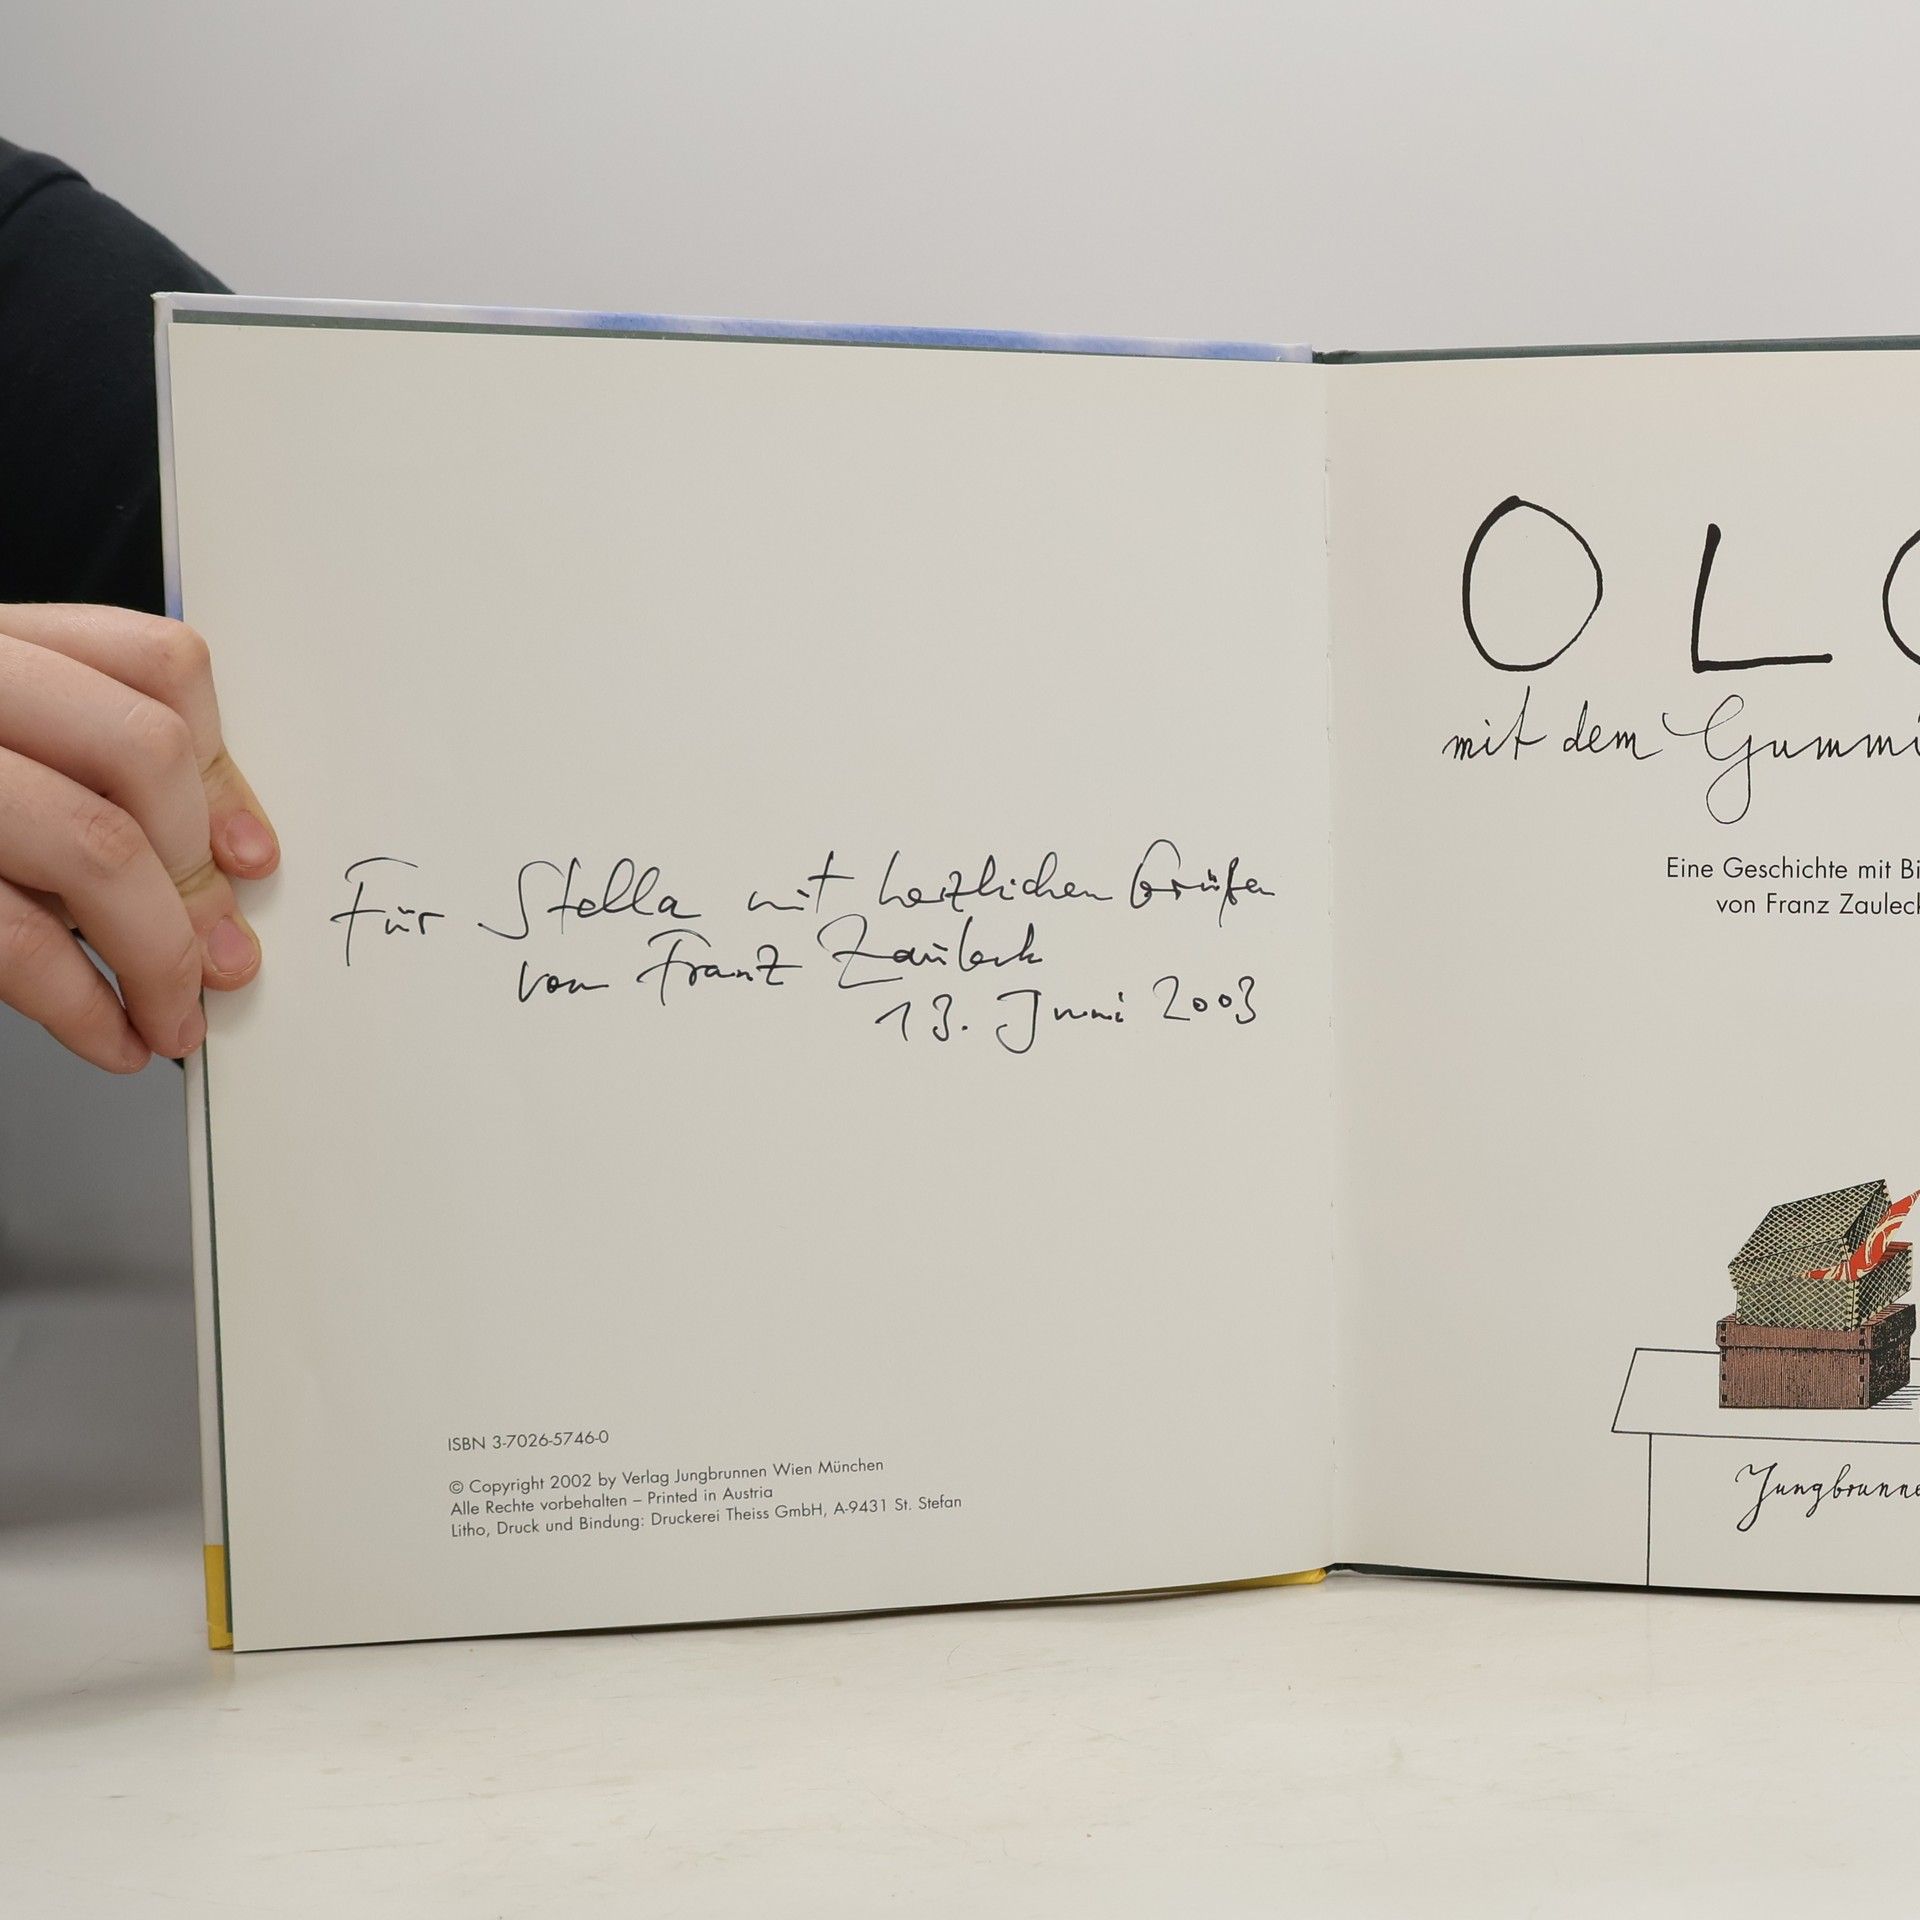 Für Stella mit herzlichen Grüßen
von Franz Zauleck
13. Juni 2003
ISBN 3-7026-5746-0
© Copyright 2002 by Verlag Jungbrunnen Wien München
Alle Rechte vorbehalten – Printed in Austria
Litho, Druck und Bindung: Druckerei Theiss GmbH, A-9431 St. Stefan
OL
mit dem Gummi
Eine Geschichte mit Bi
von Franz Zauleck
Jungbrunne